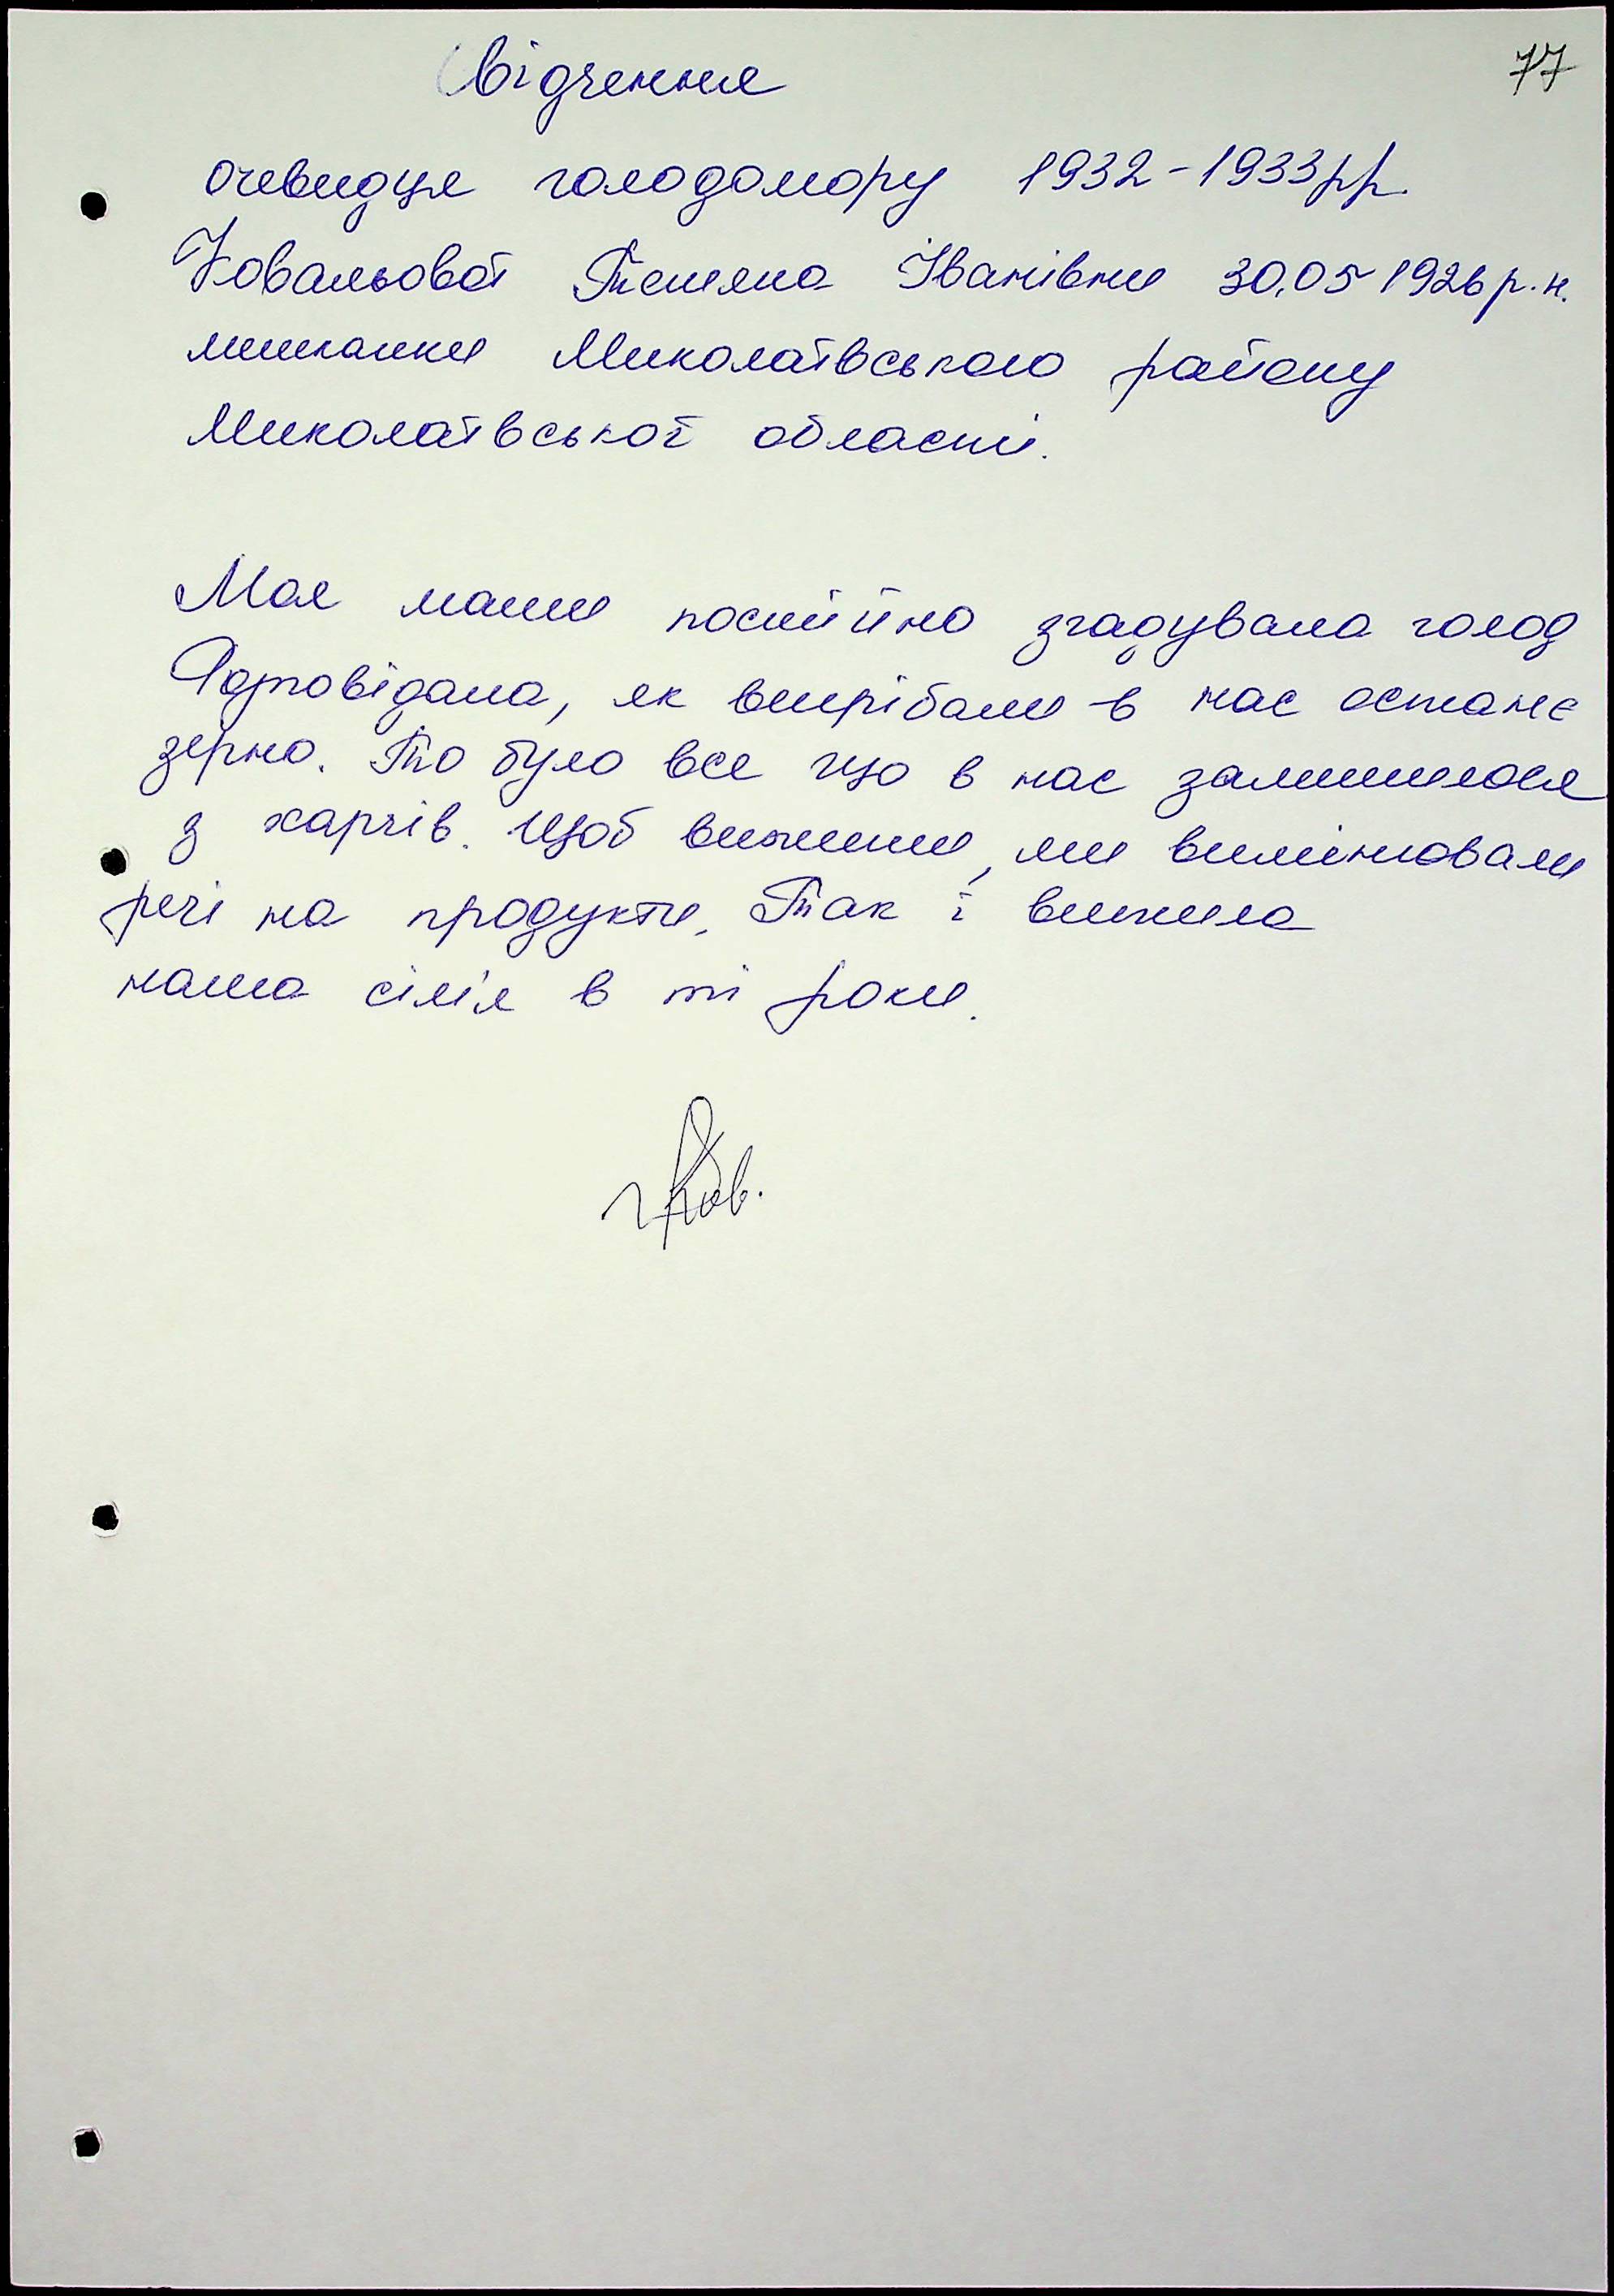 77
Свідчення
очевидця голодомору 1932-1933рр.
Ковальової Тетяна Іванівни 30.05 1926р.н.
мешканки Миколаївського району
Миколаївської області.
Моя мати постійно згадувала голод
Розповідала, як вигрібали в нас останє
зерно. То було все що в нас залишилося
з харчів. Щоб вижити, ми вимінювали
речі на продукти. Так і вижила
наша сім'я в ті роки.
Ков.